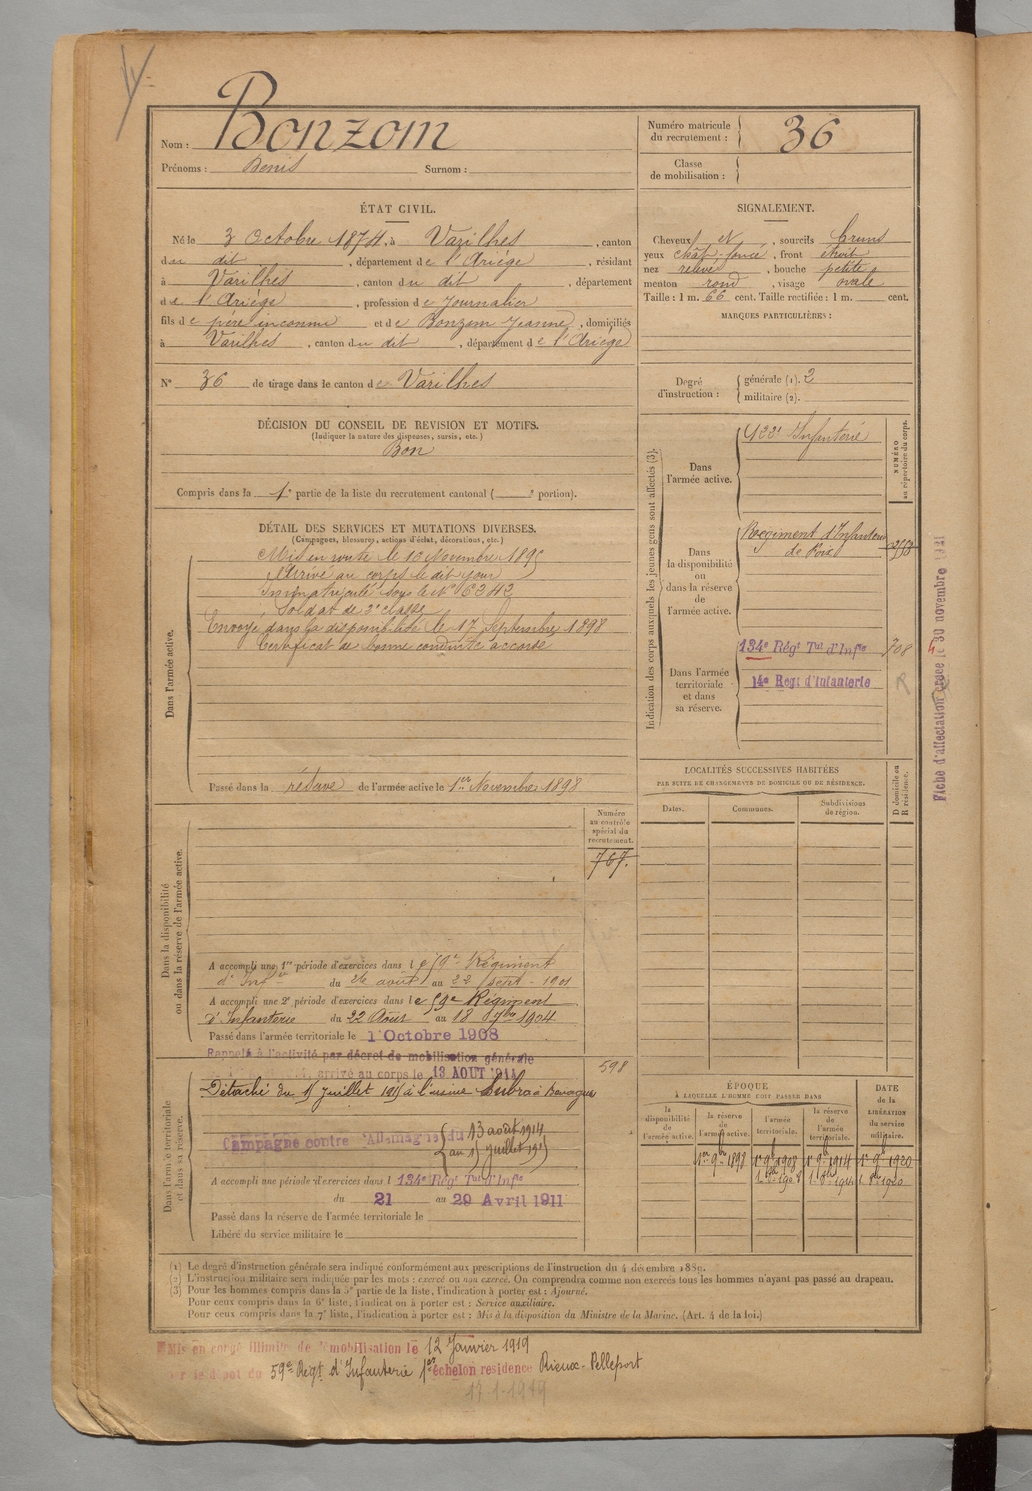 Nom : Bonzom
Prénoms : Denis Surnom :
Numéro matricule du recrutement : 36
Classe de mobilisation :
ÉTAT CIVIL.
Né le 3 Octobre 1874, à Varilhes, canton
du dit, département de l'Ariège, résidant
à Varilhes, canton du dit, département
de l'Ariège, profession de Journalier
fils de père inconnu et de Bonzom Jeanne, domiciliés
à Varilhes, canton du dit, département de l'Ariège
N° 36 de tirage dans le canton de Varilhes
SIGNALEMENT.
Cheveux et, sourcils bruns
yeux chât. foncé, front étroit
nez relevé, bouche petite
menton rond, visage ovale
Taille : 1 m. 66 cent. Taille rectifiée : 1 m. cent.
MARQUES PARTICULIÈRES :
Degré d'instruction : générale (1). 2
militaire (2).
DÉCISION DU CONSEIL DE REVISION ET MOTIFS.
(Indiquer la nature des dispenses, sursis, etc.)
Bon
Compris dans la 1e partie de la liste du recrutement cantonal ( e portion).
DÉTAIL DES SERVICES ET MUTATIONS DIVERSES.
(Campagnes, blessures, actions d'éclat, décorations, etc.)
Dans l'armée active.
Mis en route le 16 Novembre 1895
Arrivé au corps le dit jour
Immatriculé sous le N° 6342
Soldat de 2e classe
Envoyé dans la disponibilité le 17 Septembre 1898
Certificat de bonne conduite accordé
Passé dans la réserve de l'armée active le 1er Novembre 1898
Indication des corps auxquels les jeunes gens sont affectés (3).
NUMÉRO au répertoire du corps.
Dans l'armée active.
122e Infanterie
Dans la disponibilité ou dans la réserve de l'armée active.
Régiment d'Infanterie
de Foix
Dans l'armée territoriale et dans sa réserve.
134e Régt Tal d'Infie 708
14e Regt d'Infanterie
Fiche d'affectation le 30 novembre
LOCALITÉS SUCCESSIVES HABITÉES
PAR SUITE DE CHANGEMENTS DE DOMICILE OU DE RÉSIDENCE.
Dates. Communes. Subdivisions de région. D domicile ou R résidence.
Dans la disponibilité ou dans la réserve de l'armée active.
Numéro au contrôle spécial du recrutement.
767.
A accompli une 1re période d'exercices dans le 59e Régiment
d'Infie du 26 août au 22 sept. 1901
A accompli une 2e période d'exercices dans le 59e Régiment
d'Infanterie du 22 Août au 18 7bre 1904
Passé dans l'armée territoriale le 1 Octobre 1908
Rappelé à l'activité par décret de mobilisation générale
arrivé au corps le 13 AOUT 1914
598
Dans l'armée territoriale et dans sa réserve.
Détaché du 15 Juillet 1915 à l'usine
Campagne contre l'Allemagne du 13 août 1914
au 15 juillet 1915
A accompli une période d'exercices dans l 134e Régt Tal d'Infie
du 21 au 29 Avril 1911
Passé dans la réserve de l'armée territoriale le
Libéré du service militaire le
ÉPOQUE
A LAQUELLE L'HOMME DOIT PASSER DANS
la disponibilité de l'armée active. la réserve de l'armée active. l'armée territoriale. la réserve de l'armée territoriale.
DATE de la LIBÉRATION du service militaire.
1er 9bre 1898 1er 9bre 1908 1er 9bre 1914 1er 9bre 1920
1. 8bre 1908 1. 8bre 1914 1. 8bre 1920
(1) Le degré d'instruction générale sera indiqué conformément aux prescriptions de l'instruction du 4 décembre 1889.
(2) L'instruction militaire sera indiquée par les mots : exercé ou non exercé. On comprendra comme non exercés tous les hommes n'ayant pas passé au drapeau.
(3) Pour les hommes compris dans la 5e partie de la liste, l'indication à porter est : Ajourné.
Pour ceux compris dans la 6e liste, l'indication à porter est : Service auxiliaire.
Pour ceux compris dans la 7e liste, l'indication à porter est : Mis à la disposition du Ministre de la Marine. (Art. 4 de la loi.)
Mis en congé illimité de démobilisation le 12 Janvier 1919
par le dépôt du 59e Régt d'Infanterie 1er échelon residence Rieux-Pelleport
17-1-1919